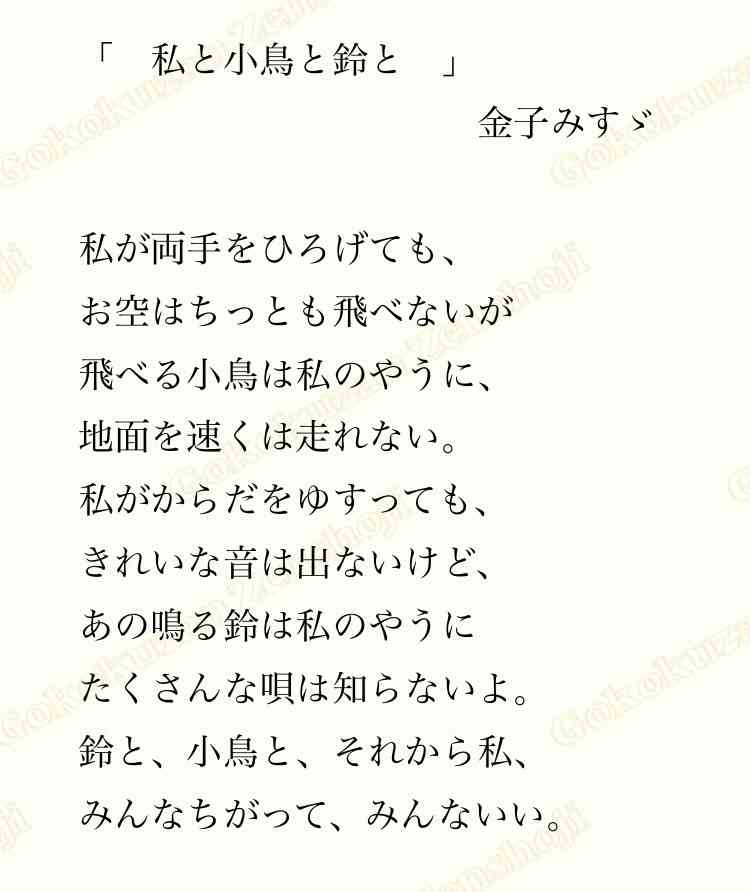 「　私と小鳥と鈴と　」
金子みすゞ
私が両手をひろげても、
お空はちっとも飛べないが
飛べる小鳥は私のやうに、
地面を速くは走れない。
私がからだをゆすっても、
きれいな音は出ないけど、
あの鳴る鈴は私のやうに
たくさんな唄は知らないよ。
鈴と、小鳥と、それから私、
みんなちがって、みんないい。